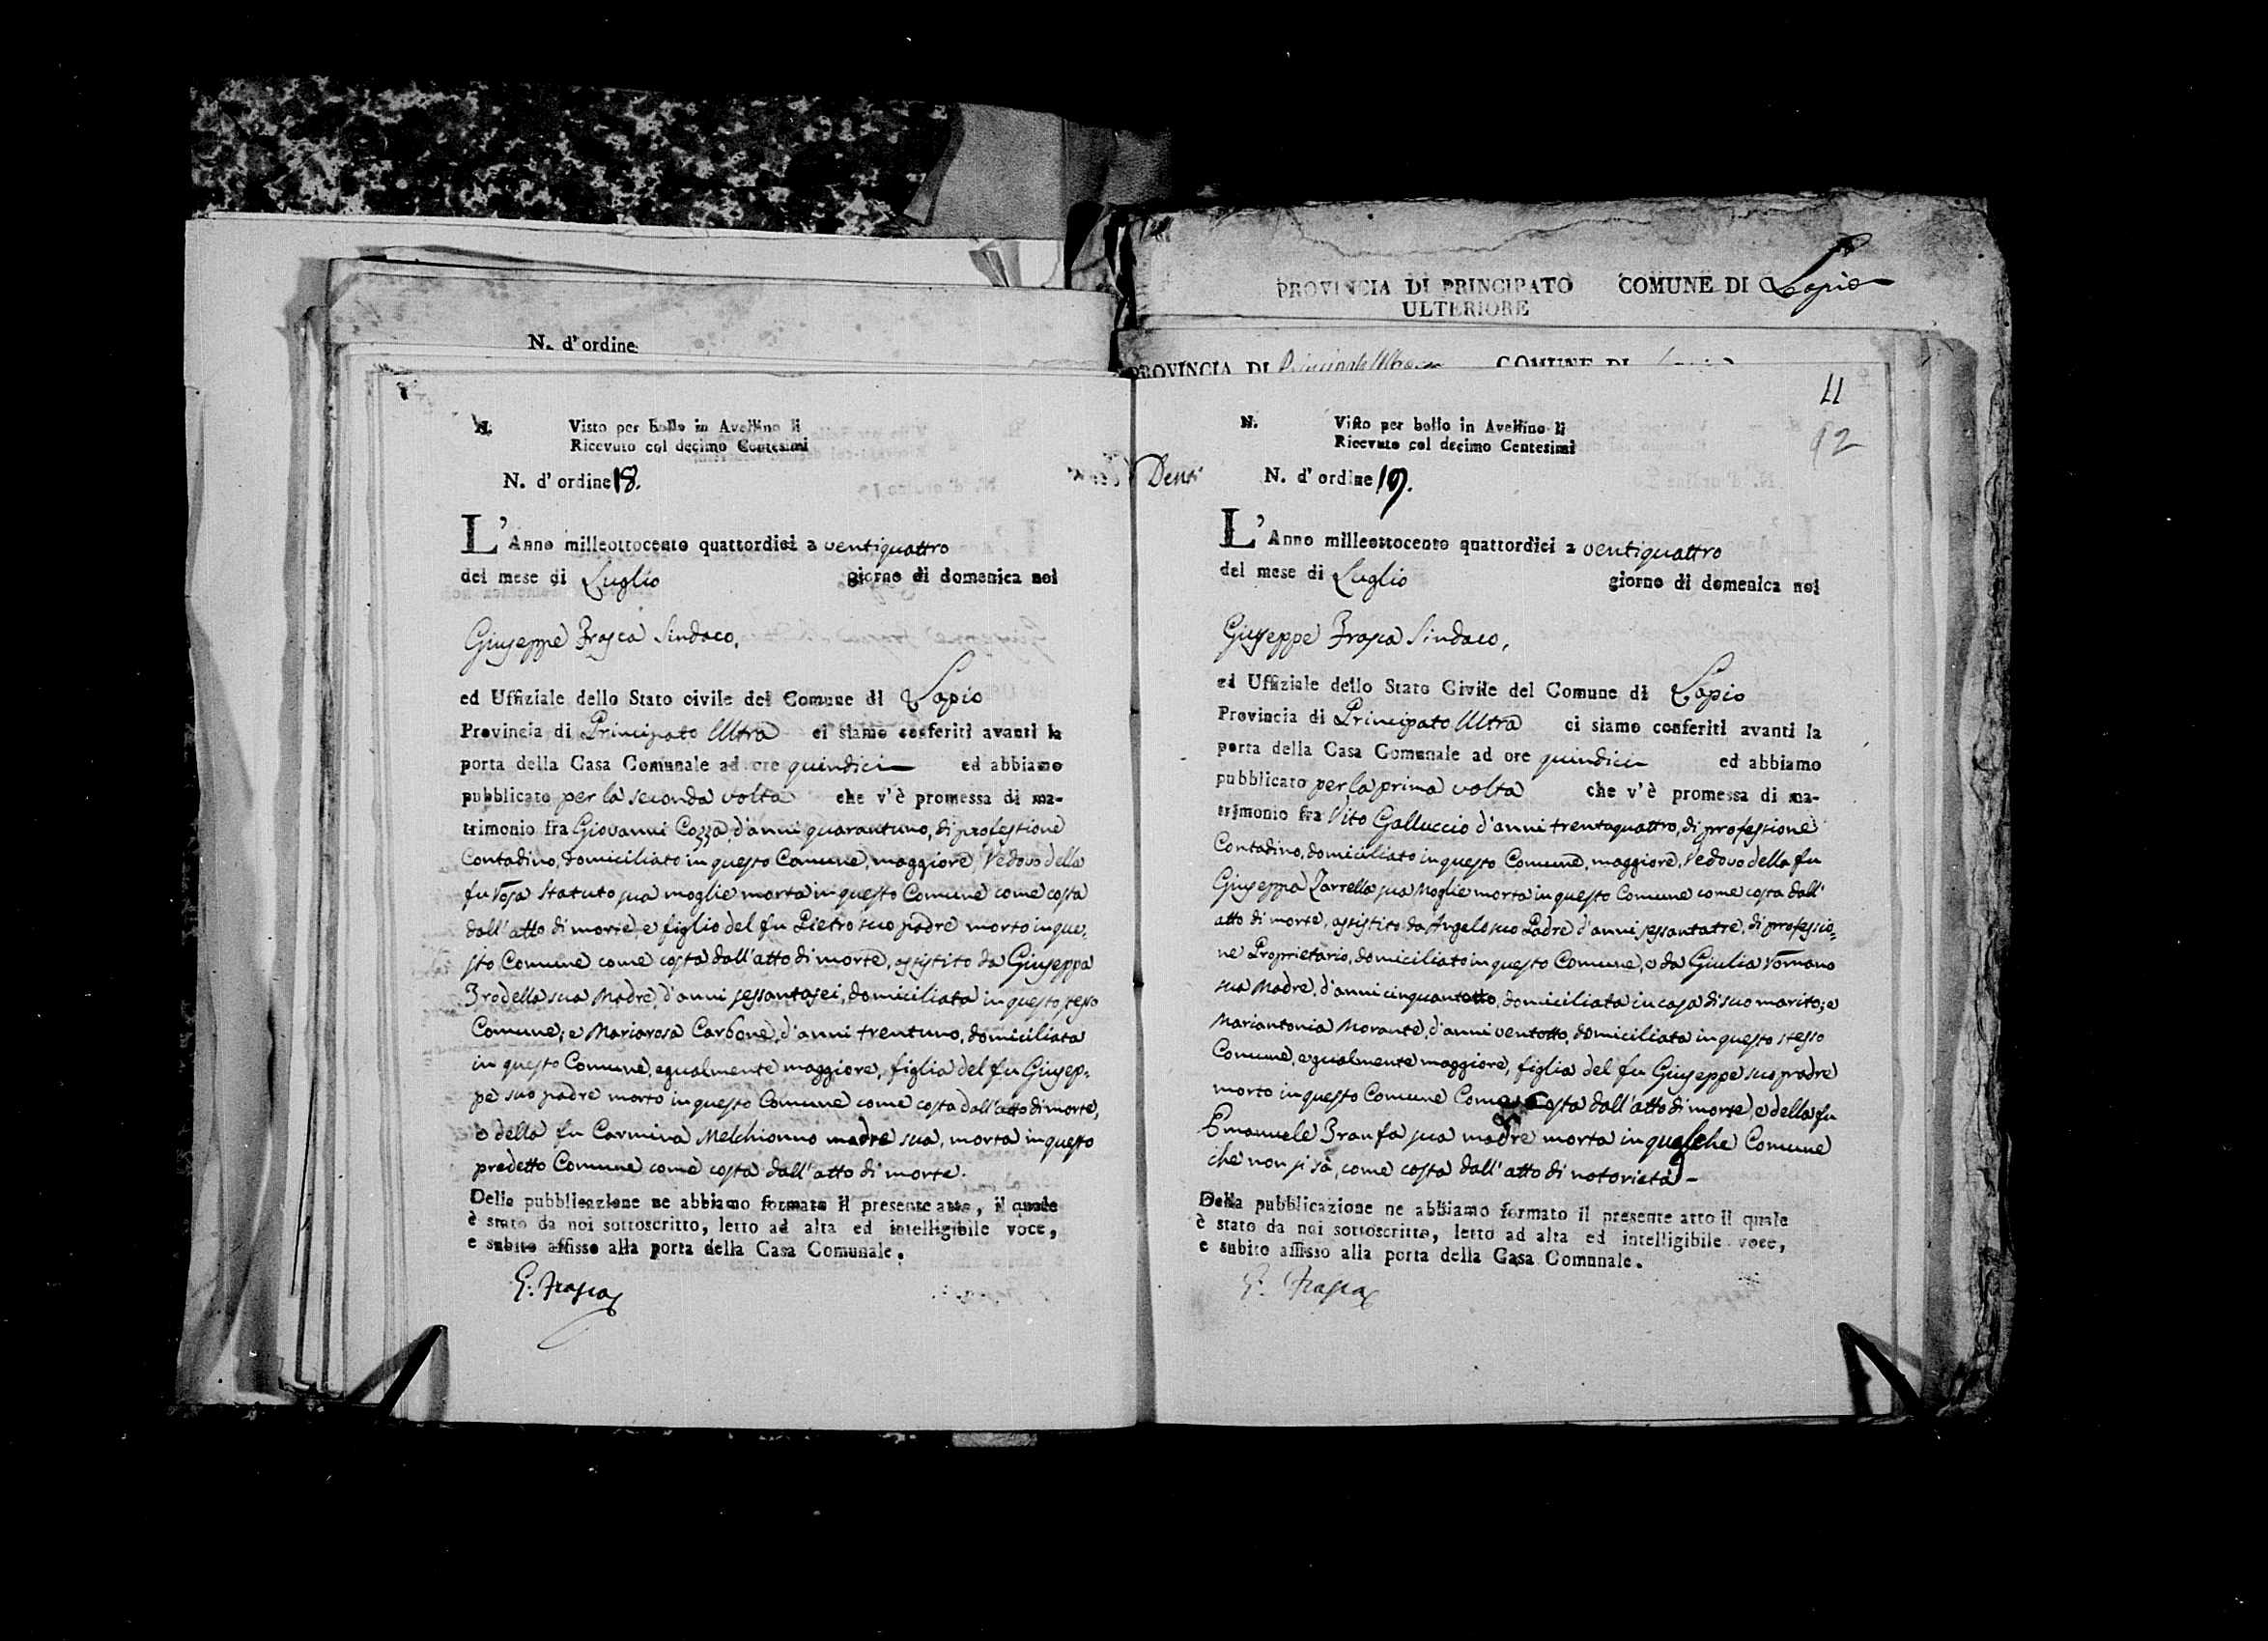 PROVINCIA DI PRINCIPATO ULTERIORE COMUNE DI Lapio
N. d' ordine
PROVINCIA DI COMUNE DI
N. Visto per bollo in Avellino li
Ricevuto col decimo Centesimi
N. d' ordine 18.
L' Anno milleottocento quattordici a ventiquattro
del mese di Luglio giorno di domenica noi
Giuseppe Frasca Sindaco,
ed Uffiziale dello Stato civile del Comune di Lapio
Provincia di Principato Ultra ci siamo conferiti avanti la
porta della Casa Comunale ad ore quindici ed abbiamo
pubblicato per la seconda volta che v'è promessa di ma-
trimonio fra Giovanni Cozza, d'anni quarantuno, di professione
Contadino, domiciliato in questo Comune, maggiore, Vedovo della
fu Rosa Statuto sua moglie morta in questo Comune come costa
dall'atto di morte, e figlio del fu Pietro suo padre morto in que-
sto Comune come costa dall'atto di morte, assistito da Giuseppa
Frodella sua Madre, d'anni sessantasei, domiciliata in questo stesso
Comune; e Mariarosa Carbone, d'anni trentuno, domiciliata
in questo Comune, egualmente maggiore, figlia del fu Giusep-
pe suo padre morto in questo Comune come costa dall'atto di morte,
e della fu Carmina Melchionno madre sua, morta in questo
predetto Comune come costa dall'atto di morte.
Della pubblicazione ne abbiamo formato il presente atto, il quale
è stato da noi sottoscritto, letto ad alta ed intelligibile voce,
e subito affisso alla porta della Casa Comunale.
G. Frasca
11
92
N. Visto per bollo in Avellino li
Ricevuto col decimo Centesimi
N. d' ordine 19.
L' Anno milleottocento quattordici a ventiquattro
del mese di Luglio giorno di domenica noi
Giuseppe Frasca Sindaco,
ed Uffiziale dello Stato Civile del Comune di Lapio
Provincia di Principato Ultra ci siamo conferiti avanti la
porta della Casa Comunale ad ore quindici ed abbiamo
pubblicato per la prima volta che v'è promessa di ma-
trimonio fra Vito Galluccio d'anni trentaquattro, di professione
Contadino, domiciliato in questo Comune, maggiore, Vedovo della fu
Giuseppa Zarrella sua Moglie morta in questo Comune come costa dall'
atto di morte, assistito da Angelo suo Padre d'anni sessantatre, di professio-
ne Proprietario, domiciliato in questo Comune, e da Giulia Romano
sua Madre, d'anni cinquantotto, domiciliata in casa di suo marito; e
Mariantonia Morante, d'anni ventotto, domiciliata in questo stesso
Comune, egualmente maggiore, figlia del fu Giuseppe suo padre
morto in questo Comune Come costa dall'atto di morte, e della fu
Emanuele Braufa sua madre morta in qualche Comune
che non si sà, come costa dall'atto di notorietà -
Della pubblicazione ne abbiamo formato il presente atto il quale
è stato da noi sottoscritto, letto ad alta ed intelligibile voce,
e subito affisso alla porta della Casa Comunale.
G. Frasca